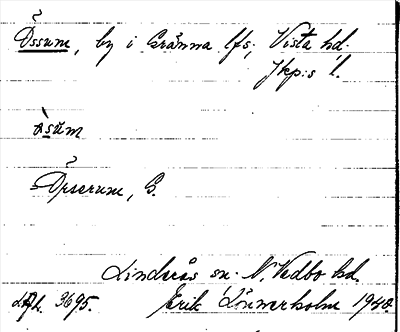 Össum, by i Gränna lfs; Vista hd.
Jkp:s l.
àsùm
Örserum, G.
Linderås sn. N. Vedbo hd.
3695. Erik Lönnerholm 1940.